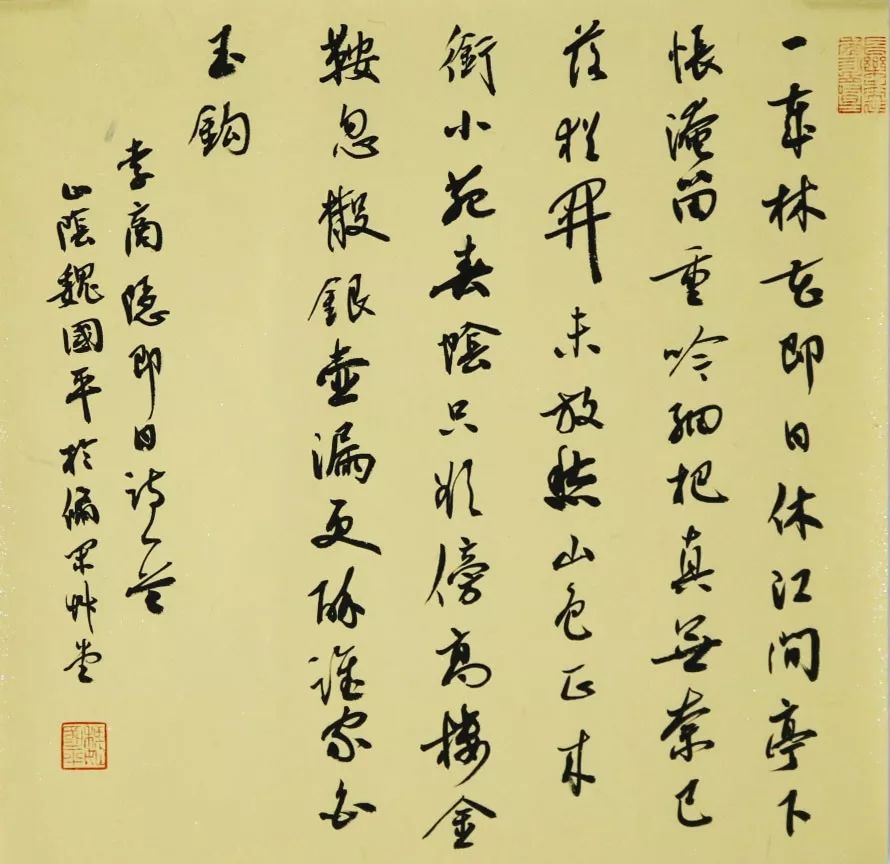 一歲林花即日休江間亭下
悵淹留重吟細把真無奈已
落猶開未放愁山色正來
銜小苑春陰只欲傍高樓金
鞍忽散銀壺漏更酥誰家白
玉鈎
李商隱即日詩一首
山陰魏國平於艸堂